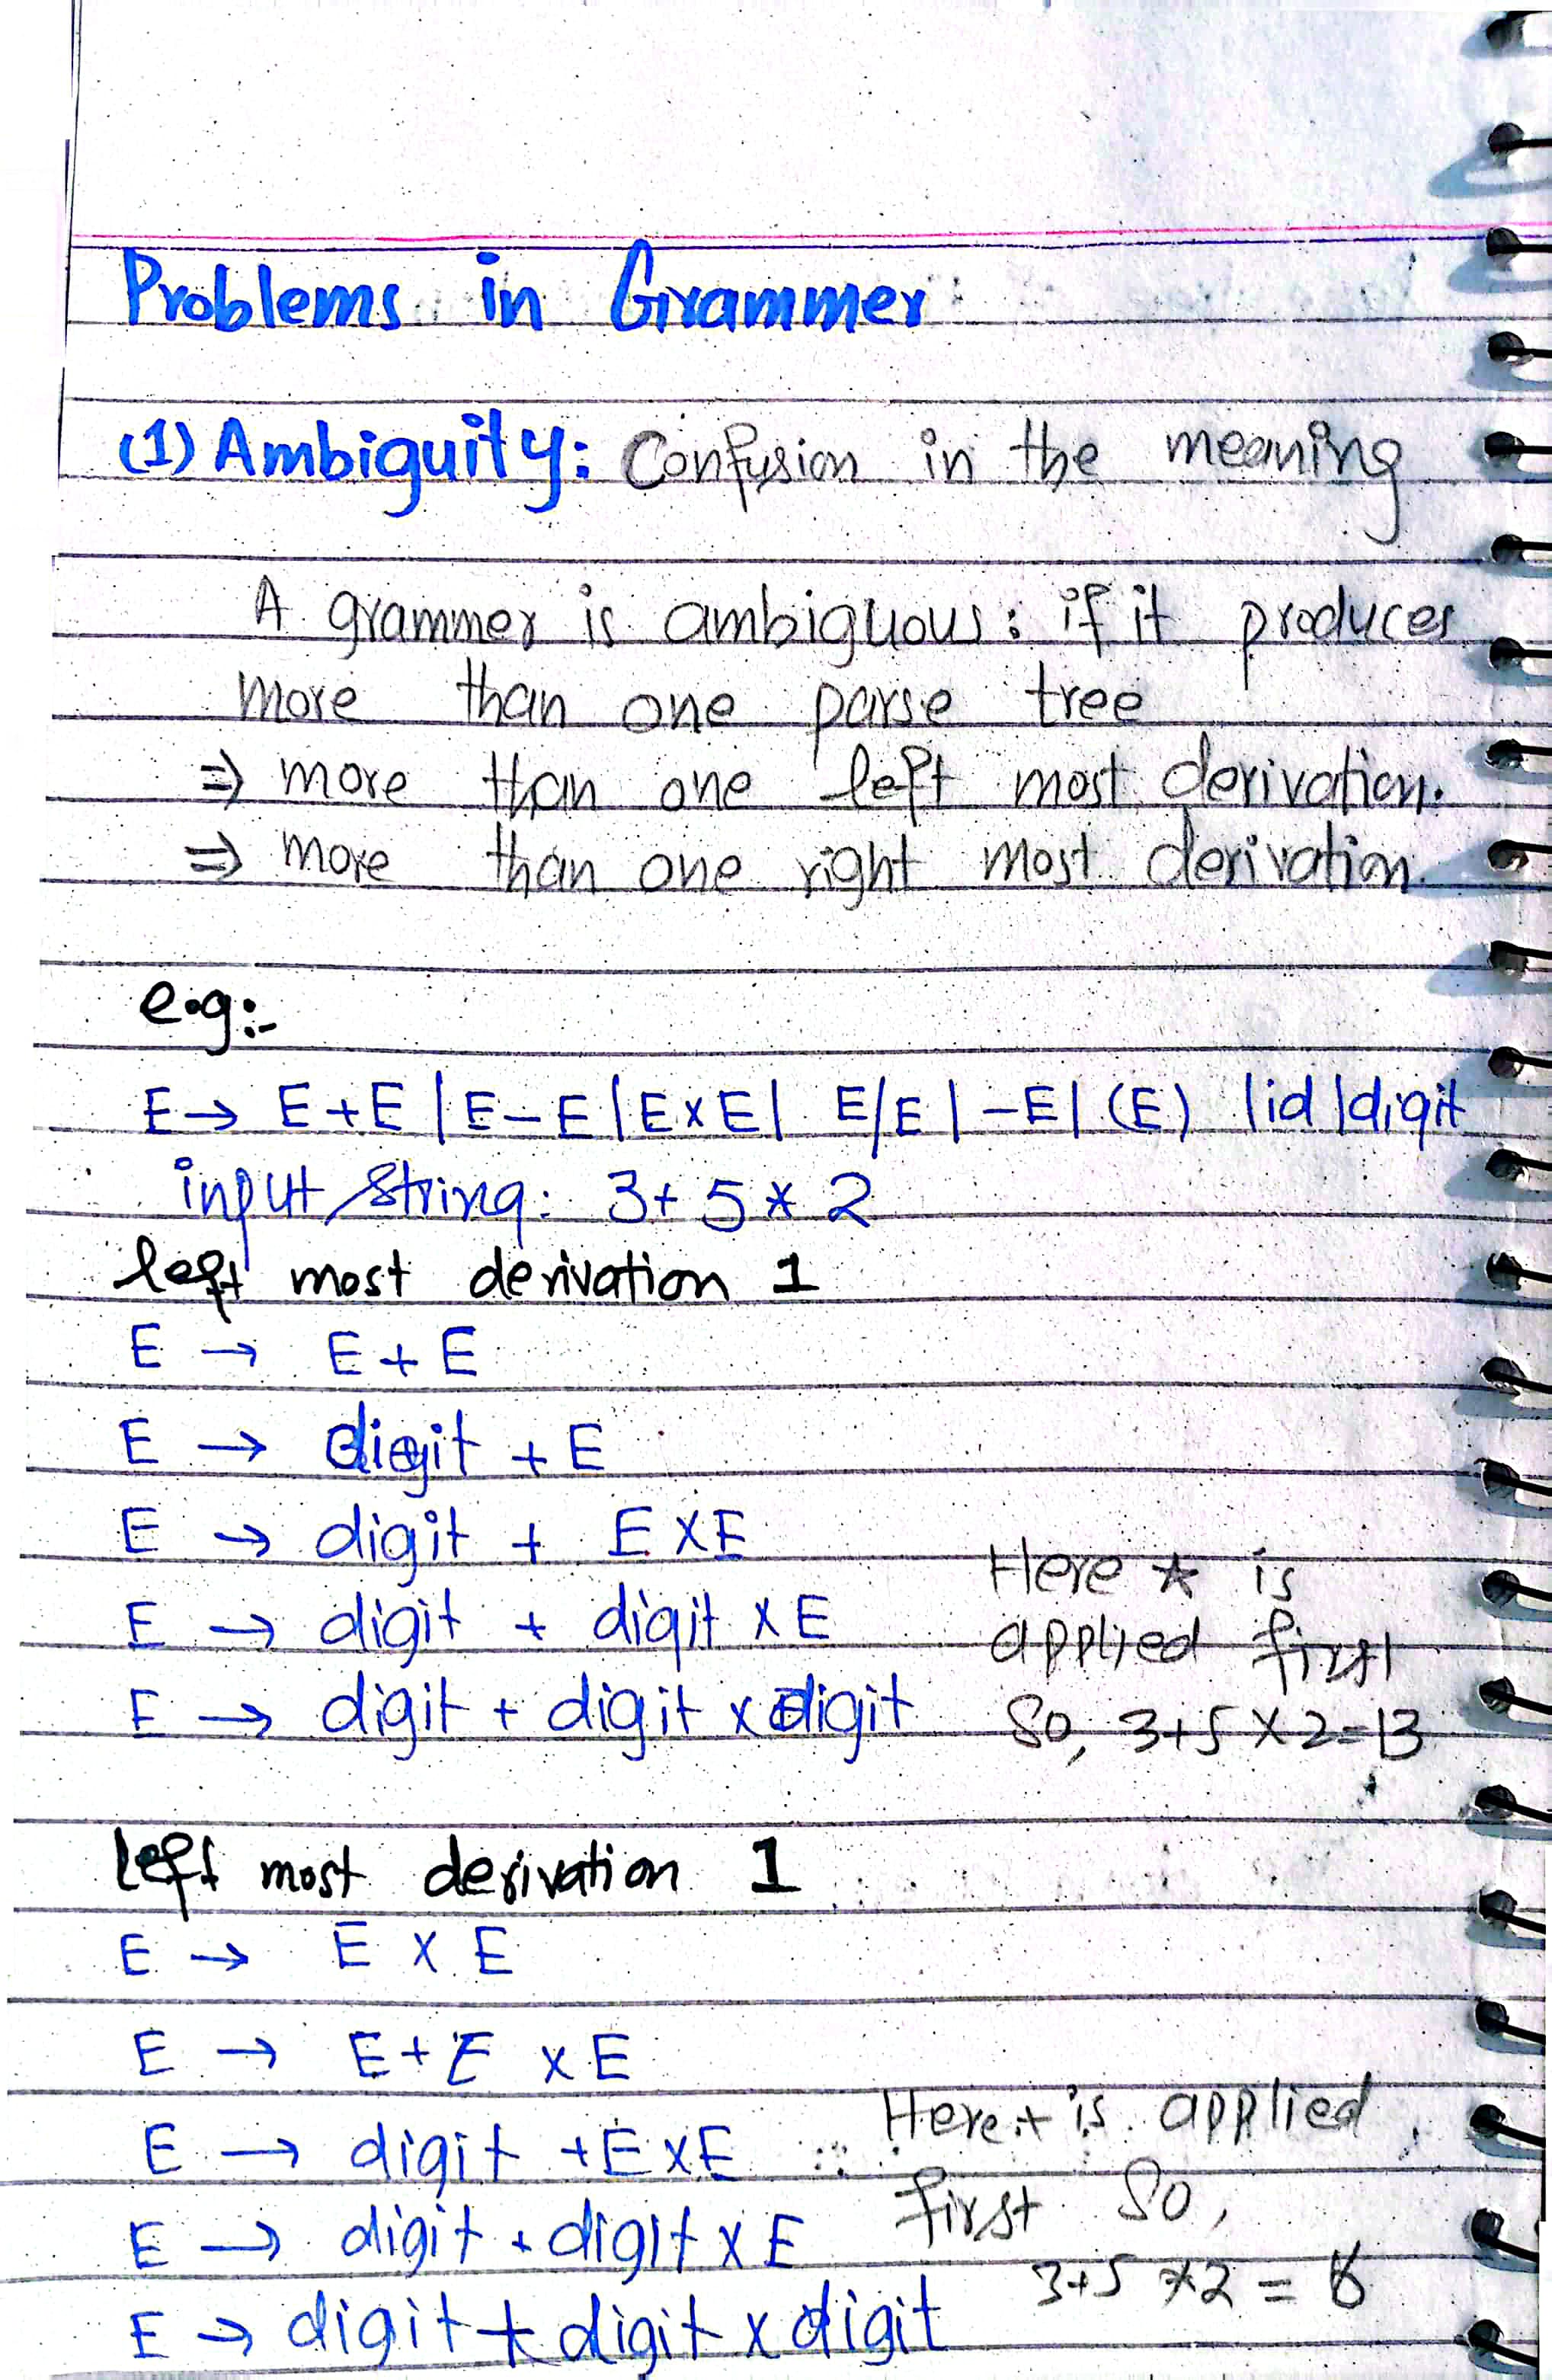 Problems in Grammer
(1) Ambiguity: Confusion in the meaning
A grammer is ambiguous: if it produces
more than one parse tree
⇒ more than one left most derivation.
⇒ more than one right most derivation.
e.g:-
E → E+E | E-E | E×E | E/E | -E | (E) | id | digit
input string: 3+5*2
left most derivation 1
E → E+E
E → digit + E
E → digit + E×E
E → digit + digit × E
E → digit + digit × digit
Here * is
applied first
So, 3+5×2=13
left most derivation 1
E → E × E
E → E+E × E
E → digit + E×E
E → digit + digit × E
E → digit + digit × digit
Here + is applied
first So,
3+5*2 =